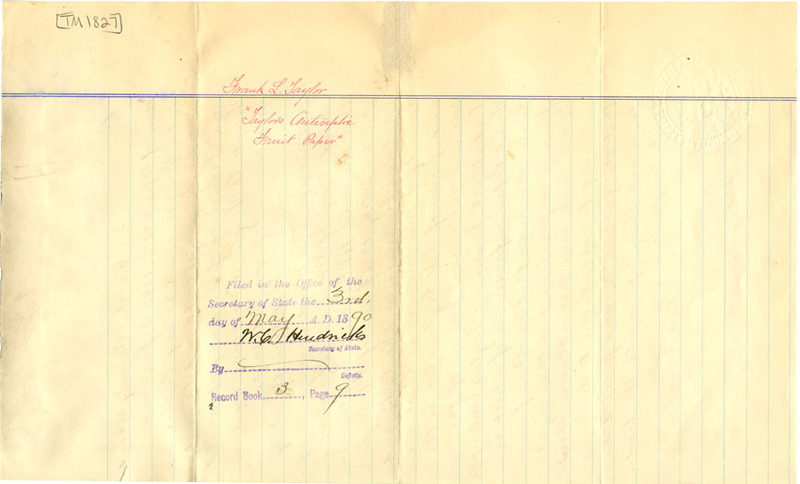 [TM1827]
Frank L Taylor
"Taylors Antiseptic
Fruit Paper"
Filed in the Office of the
Secretary of State the 3rd.
day of May A. D. 1890
W. C. Hendricks
Secretary of State.
By
Deputy.
Record Book, 3, Page 9